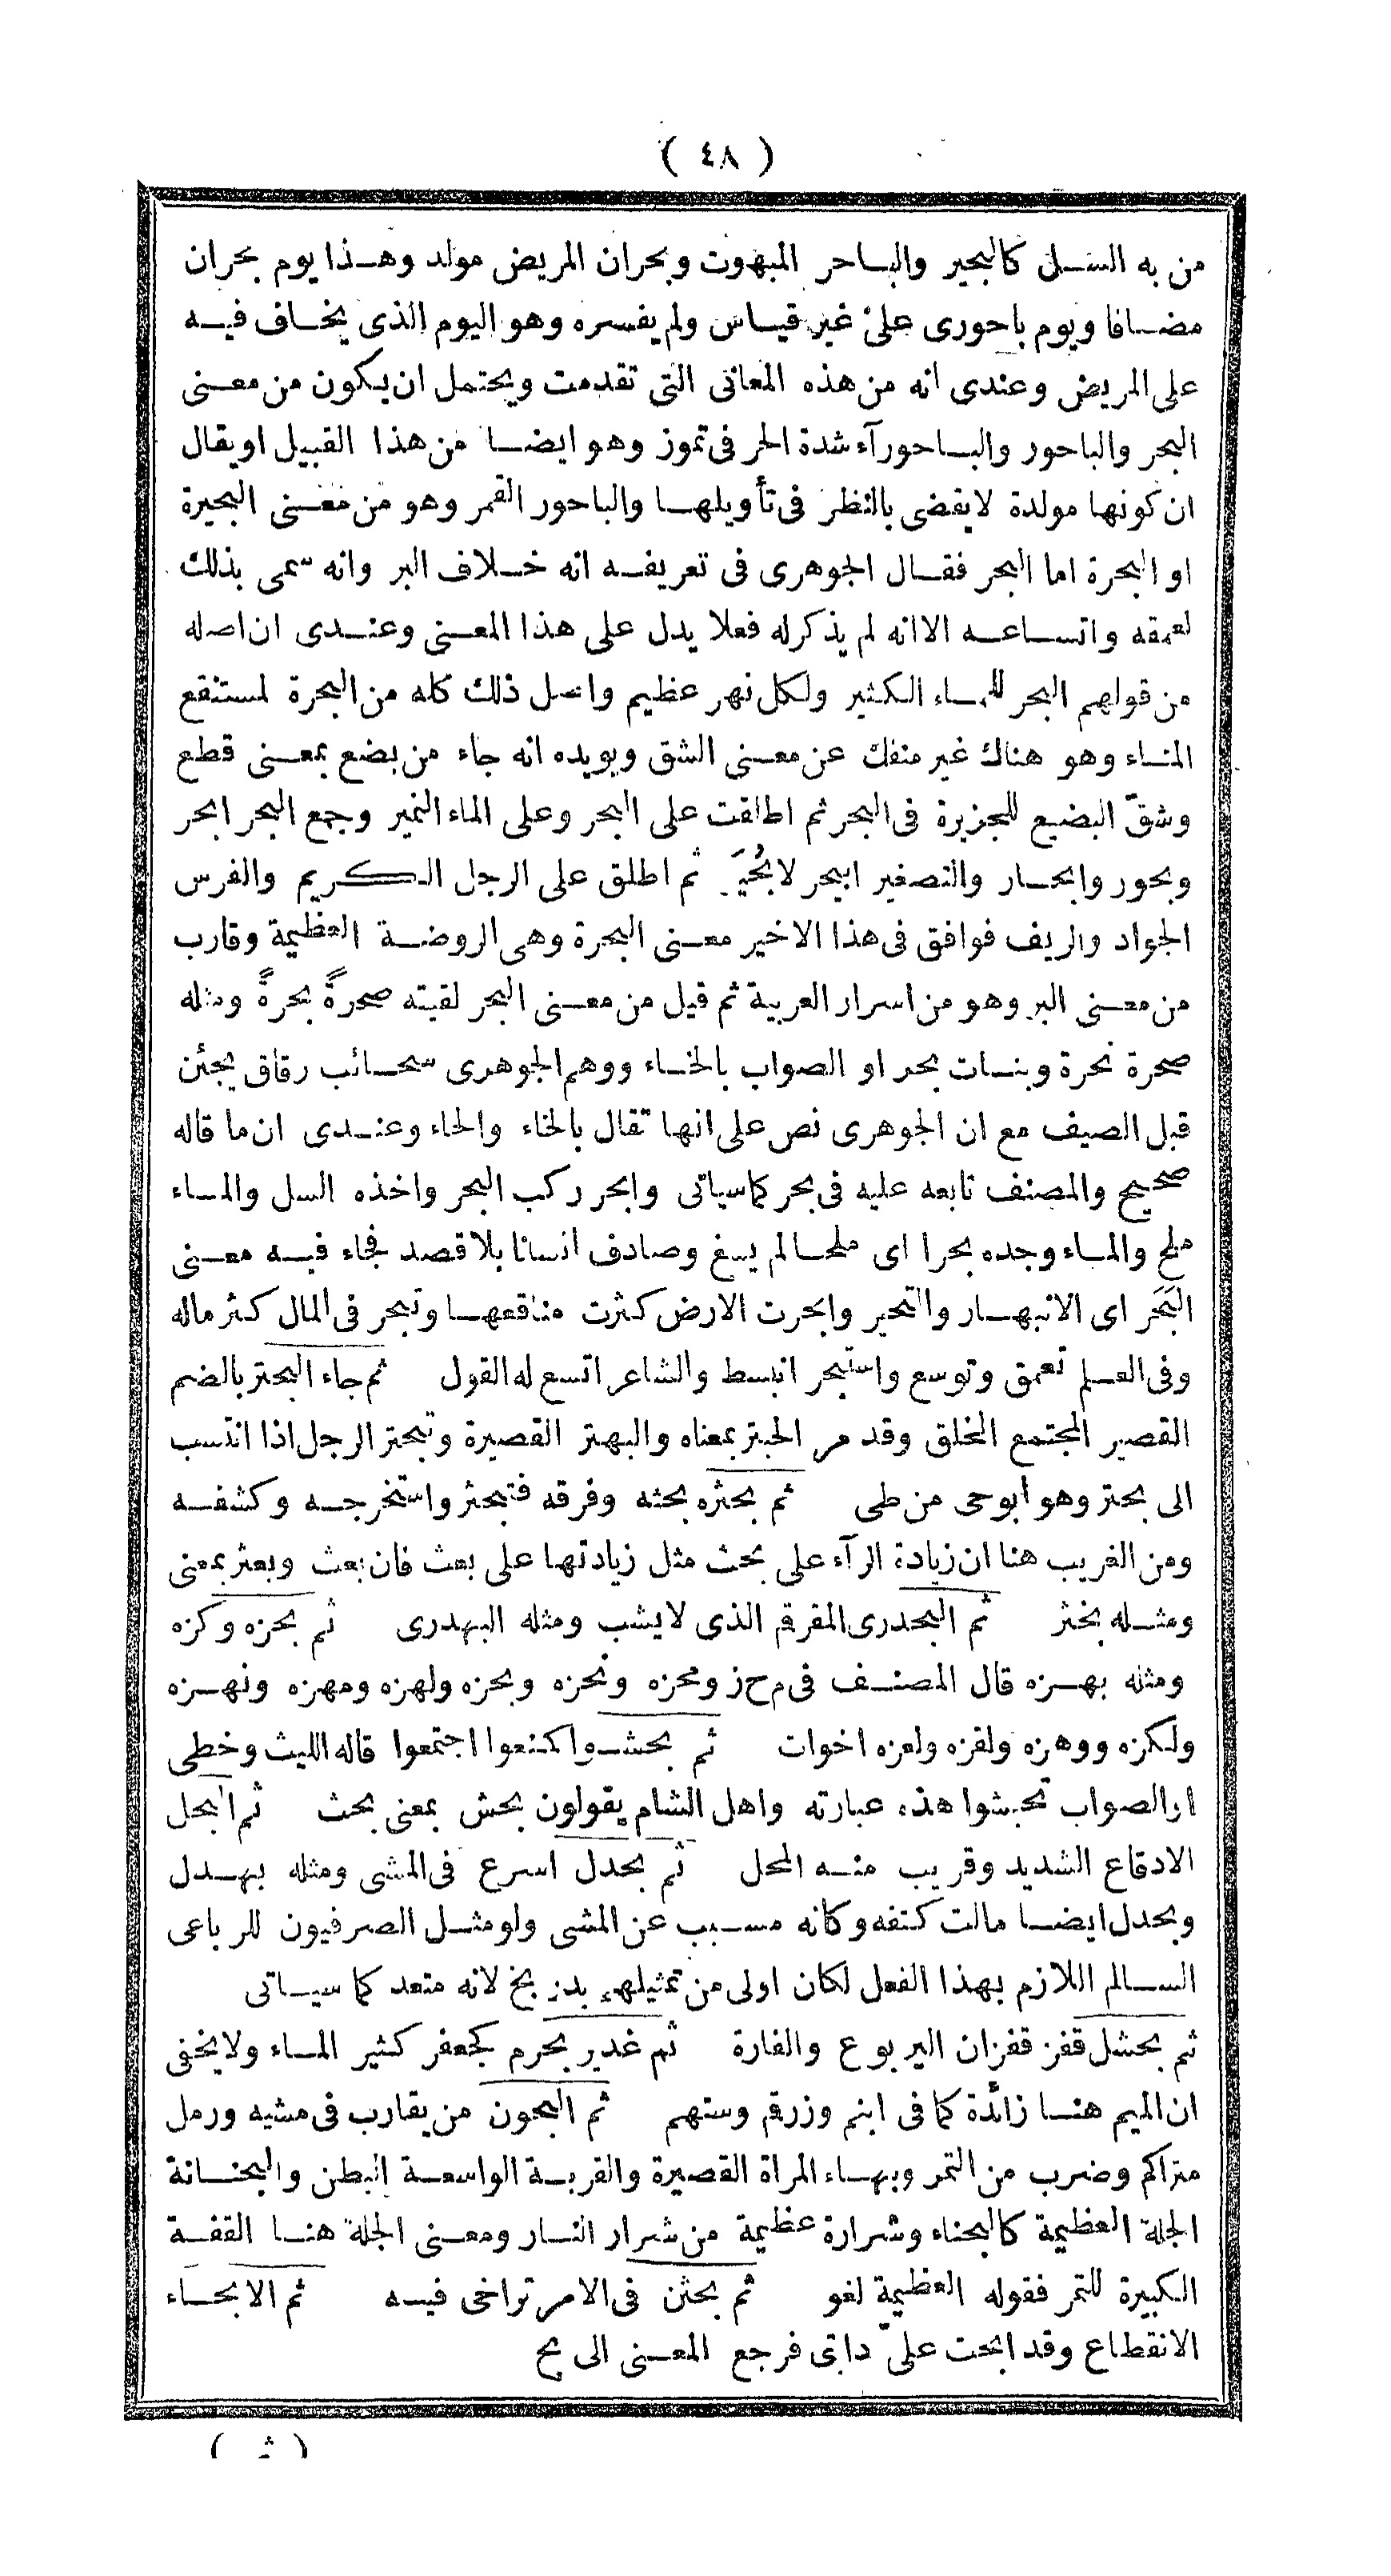 ( ٤٨ )
من به السل كالبحير والباحر المبهوت وبحران المريض مولد وهذا يوم بحران
مضافا ويوم باحورى على غير قياس ولم يفسره وهو اليوم الذى يخاف فيه
على المريض وعندى انه من هذه المعانى التى تقدمت ويحتمل ان يكون من معنى
البحر والباحور والباحورآء شدة الحر فى تموز وهو ايضا من هذا القبيل او يقال
ان كونها مولدة لا يقضى بالنظر فى تأويلها والباحور القمر وهو من معنى البحيرة
او البحرة اما البحر فقال الجوهرى فى تعريفه انه خلاف البر وانه سمى بذلك
لعمقه واتساعه الا انه لم يذكر له فعلا يدل على هذا المعنى وعندى ان اصله
من قولهم البحر للماء الكثير ولكل نهر عظيم واصل ذلك كله من البحرة لمستنقع
الماء وهو هناك غير منفك عن معنى الشق ويويده انه جاء من بضع بمعنى قطع
وشقّ البضيع للجزيرة فى البحر ثم اطلقت على البحر وعلى الماء النمير وجمع البحر ابحر
وبحور وابحار والتصغير ابيحر لا بُحَيْر ثم اطلق على الرجل الكريم والفرس
الجواد والريف فوافق فى هذا الاخير معنى البحرة وهى الروضة العظيمة وقارب
من معنى البر وهو من اسرار العربية ثم قيل من معنى البحر لقيته صحرةً بحرةً ومثله
صحرة نحرة وبنات بحر او الصواب بالخاء ووهم الجوهرى سحائب رقاق يجئن
قبل الصيف مع ان الجوهرى نص على انها تقال بالخاء والحاء وعندى ان ما قاله
صحيح والمصنف تابعه عليه فى بحر كما سياتى وابحر ركب البحر واخذه السل والماء
ملح والماء وجده بحرا اى ملحا لم يسغ وصادف انسانا بلا قصد فجاء فيه معنى
البَحَر اى الانبهار والتحير وابحرت الارض كثرت مناقعها وتبحر فى المال كثر ماله
وفى العلم تعمق وتوسع واستبحر انبسط والشاعر اتسع له القول ثم جاء البحتر بالضم
القصير المجتمع الخلق وقد مر الحبتر بمعناه والبهتر القصيرة وتبحتر الرجل اذا انتسب
الى بحتر وهو ابو حى من طى ثم بحثره بحثه وفرقه فتبحثر واستخرجه وكشفه
ومن الغريب هنا ان زيادة الرآء على بحث مثل زيادتها على بعث فان بعث وبعثر بمعنى
ومثله بخثر ثم البحدرى المقرقم الذى لا يشب ومثله البهدرى ثم بحزه وكزه
ومثله بهزه قال المصنف فى م ح ز ومحزه ونحزه وبحزه ولهزه ومهزه ونهزه
ولكزه ووهزه ولقزه ولعزه اخوات ثم بحشوا كمنعوا اجتمعوا قاله الليث وخطى
او الصواب تحبشوا هذه عبارته واهل الشام يقولون بحش بمعنى بحث ثم البحل
الادقاع الشديد وقريب منه المحل ثم بحدل اسرع فى المشى ومثله بهدل
وبحدل ايضا مالت كتفه وكانه مسبب عن المشى ولو مثل الصرفيون للرباعى
السالم اللازم بهذا الفعل لكان اولى من تمثيلهم بدربخ لانه متعد كما سياتى
ثم بحشل قفز قفزان اليربوع والفارة ثم غدير بحرم كجعفر كثير الماء ولا يخفى
ان الميم هنا زائدة كما فى ابنم وزرقم وستهم ثم البحون من يقارب فى مشيه ورمل
متراكم وضرب من التمر وبهاء المراة القصيرة والقربة الواسعة البطن والبحنانة
الجلة العظيمة كالبحناء وشرارة عظيمة من شرار النار ومعنى الجلة هنا القفة
الكبيرة للتمر فقوله العظيمة لغو ثم بحثن فى الامر تراخى فيه ثم الابحاء
الانقطاع وقد ابحت علىّ دابتى فرجع المعنى الى بح
( ثم )